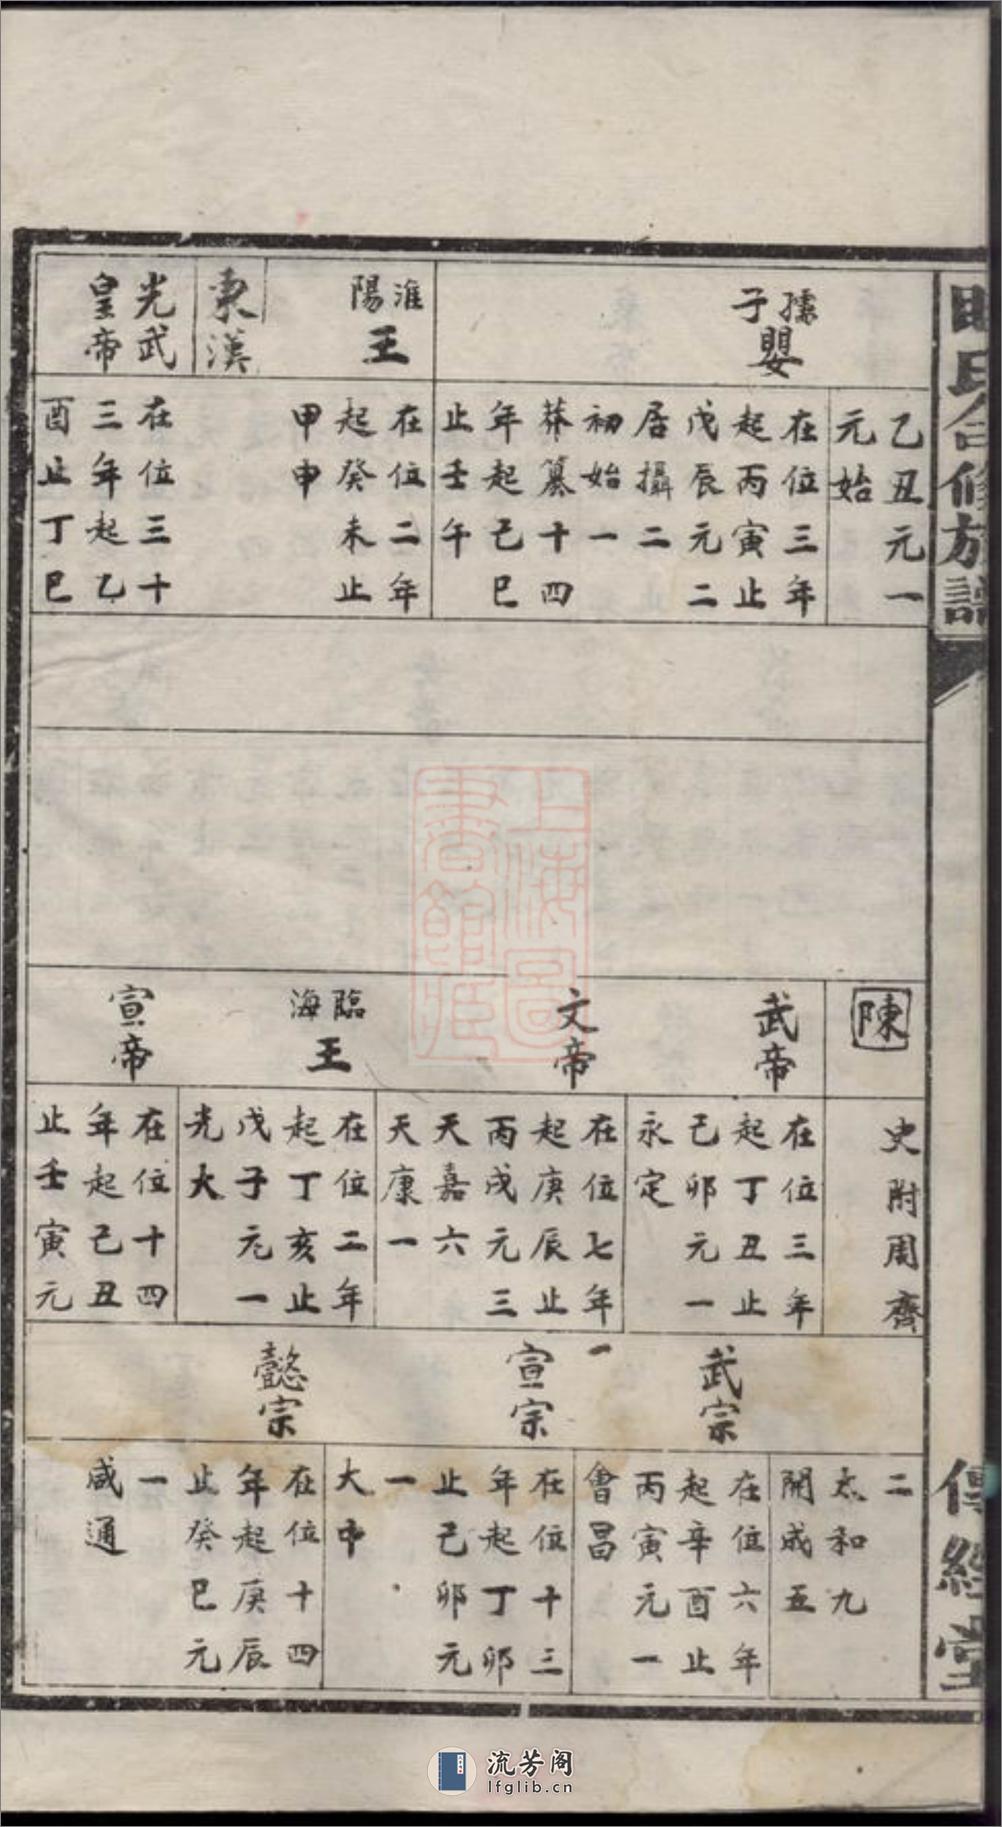 氏合修族譜
傳經堂
孺子嬰
淮陽王
東漢
光武皇帝
乙丑元一
元始
在位三年
起丙寅止
戊辰元二
居攝二
初始一
莽篡十四
年起己巳
止壬午
在位二年
起癸未止
甲申
在位三十
三年起乙
酉止丁巳
陳
武帝
文帝
臨海王
宣帝
史附周齊
在位三年
起丁丑止
己卯元一
永定
在位七年
起庚辰止
丙戌元三
天嘉六
天康一
在位二年
起丁亥止
戊子元一
光大
在位十四
年起己丑
止壬寅元
武宗
宣宗
懿宗
二
太和九
開成五
在位六年
起辛酉止
丙寅元一
會昌
在位十三
年起丁卯
止己卯元
一
大中
在位十四
年起庚辰
止癸巳元
一
咸通
上海圖
書館藏
流芳阁
lfglib.cn